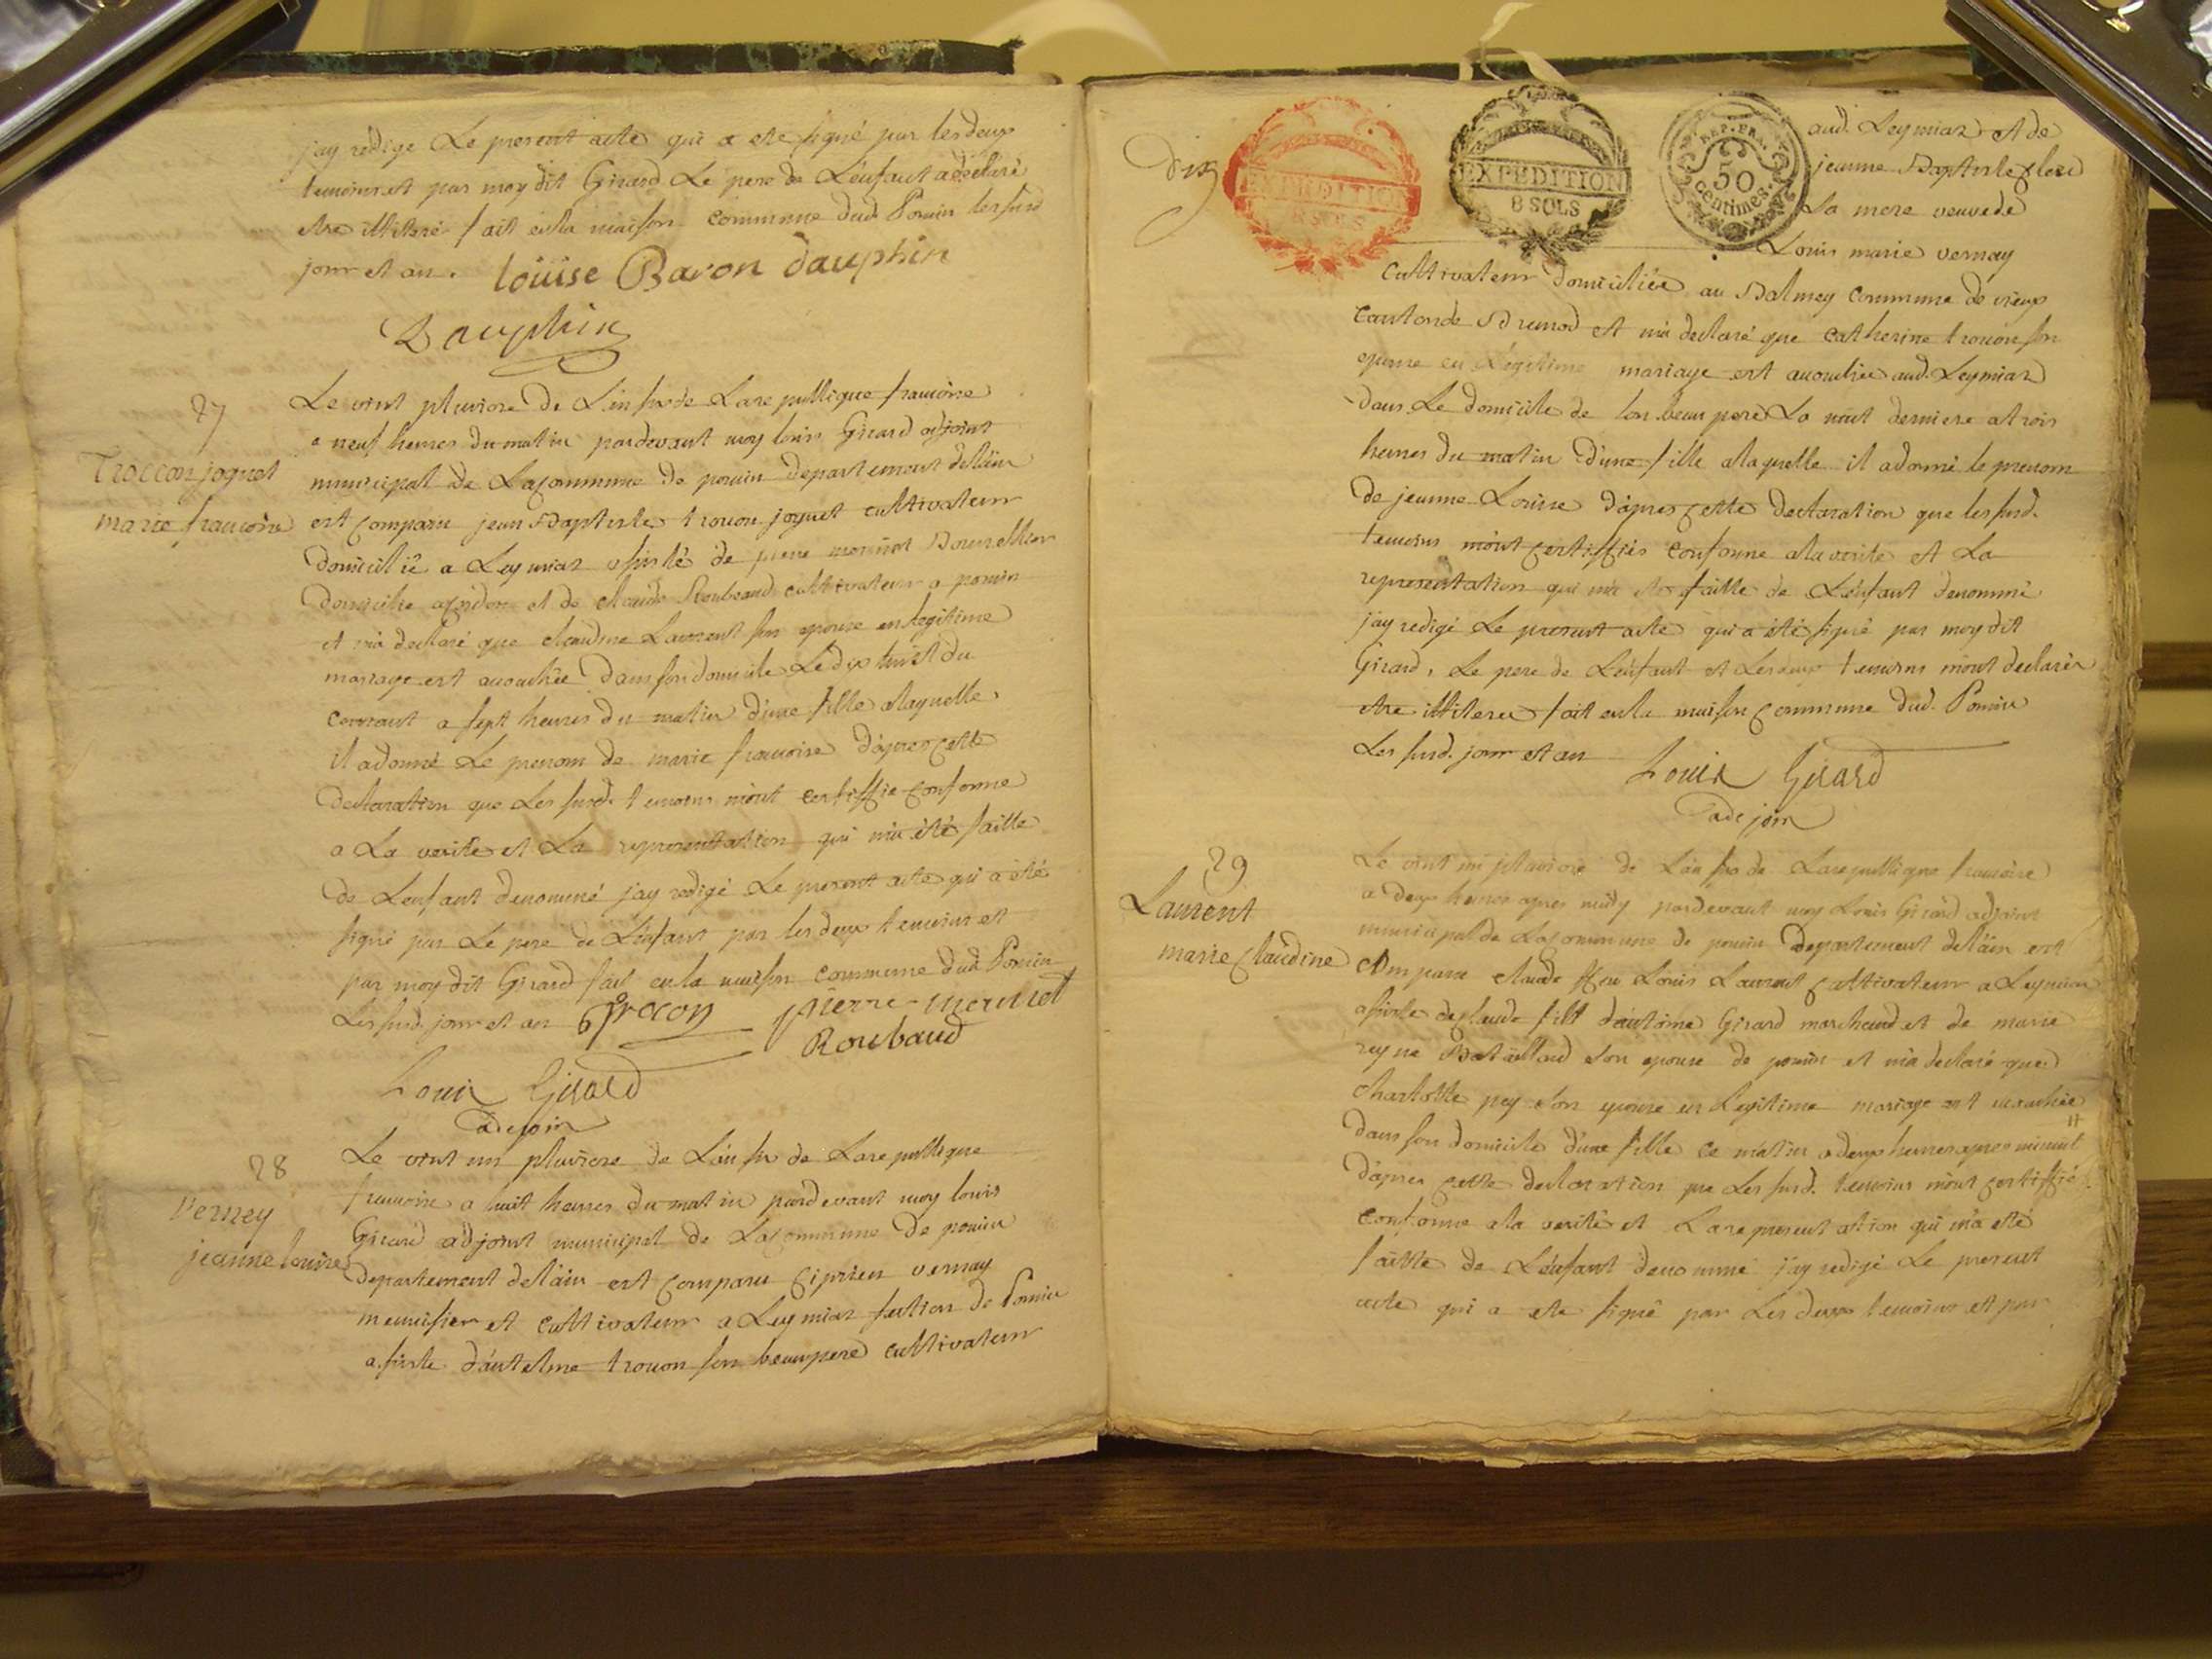 jay rédigé Le present acte qui a ete signé par les deux
temoins et par moy dit Girard Le pere de L'enfant a déclaré
etre illiteré fait en la maison commune dud. Poncin les susd
jour et an. loüise Baron dauphin
Dauphin
27
Troccon joguet
marie francoise
Le vint pluviose de L'an six de La republlique francoise
a neuf heures du matin pardevant moy louis Girard adjoint
municipal de La commune de poncin departement de l'ain
est comparu jean Baptiste trocon joguet cultivateur
domicilié a Leymiaz assisté de pierre mermet
domicilié et de claude Roubaud cultivateur a poncin
et m'a declaré que claudine Laurent son epouse en legitime
mariage est accouchée dans son domicile Le dix huit du
courant a sept heures du matin d'une fille a laquelle
il a donné Le prenom de marie francoise d'apres cette
declaration que Les susd. temoins m'ont certiffié conforme
a La verite et La representation qui m'a été faitte
de Lenfant denommé jay redigé Le present acte qui a été
signé par Le pere de L'enfant par les deux temoins et
par moy dit Girard fait en la maison commune dud Poncin
Les susd. jour et an Trocon pierre mermet
Roubaud
Louis Girard
adjoin
28
Verney
jeanne louise
Le vint un pluviose de L'an six de La republlique
francoise a huit heures du matin pardevant moy louis
Girard adjoint municipal de La commune de poncin
departement de l'ain est comparu ciprien vernay
menuisier et cultivateur a Leymiaz section de Poncin
assisté d'antelme trocon son beaupere cultivateur
Dix
EXPEDITION
8 SOLS
EXPEDITION
8 SOLS
REP. FR.
50
Centimes.
aud. Leymiaz et de
jeanne Baptiste
Sa mere veuve de
Louis marie vernay
cultivateur domiciliée au Balmey commune de vieux
canton de Brenod et m'a declaré que catherine trocon son
epouse en Légitime mariage est accouchée aud. Leymiaz
dans Le domicile de son beau pere La nuit derniere a trois
heures du matin d'une fille a laquelle il a donné le prenom
de jeanne Louise d'apres cette declaration que les susd.
temoins m'ont certiffiés conforme a la verité et La
representation qui m'a ete faitte de L'enfant denommé
j'ay redigé Le present acte qui a été signé par moy dit
Girard, Le pere de L'enfant et Les deux temoins m'ont declarés
etre illiteres fait en la maison commune dud. Poncin
Les susd. jour et an Louis Girard
adejoin
29
Laurent
marie claudine
Le vint un pluviose de L'an six de La republlique francoise
a deux heures apres midy pardevant moy Louis Girard adjoint
municipal de La commune de poncin departement de l'ain est
comparu claude Louis Laurent cultivateur a Leymiaz
assisté de claude fils d'antoine Girard marchand et de marie
reyne Bataillard son epouse de poncin et m'a declaré que
charlotte pey son epouse en Legitime mariage est accouchée
dans son domicile d'une fille ce matin a deux heures apres minuit
d'apres cette declaration que Les susd. temoins m'ont certiffié
conforme a la verité et La representation qui m'a eté
faitte de L'enfant denommé j'ay redigé Le present
acte qui a ete signé par Les deux temoins et par